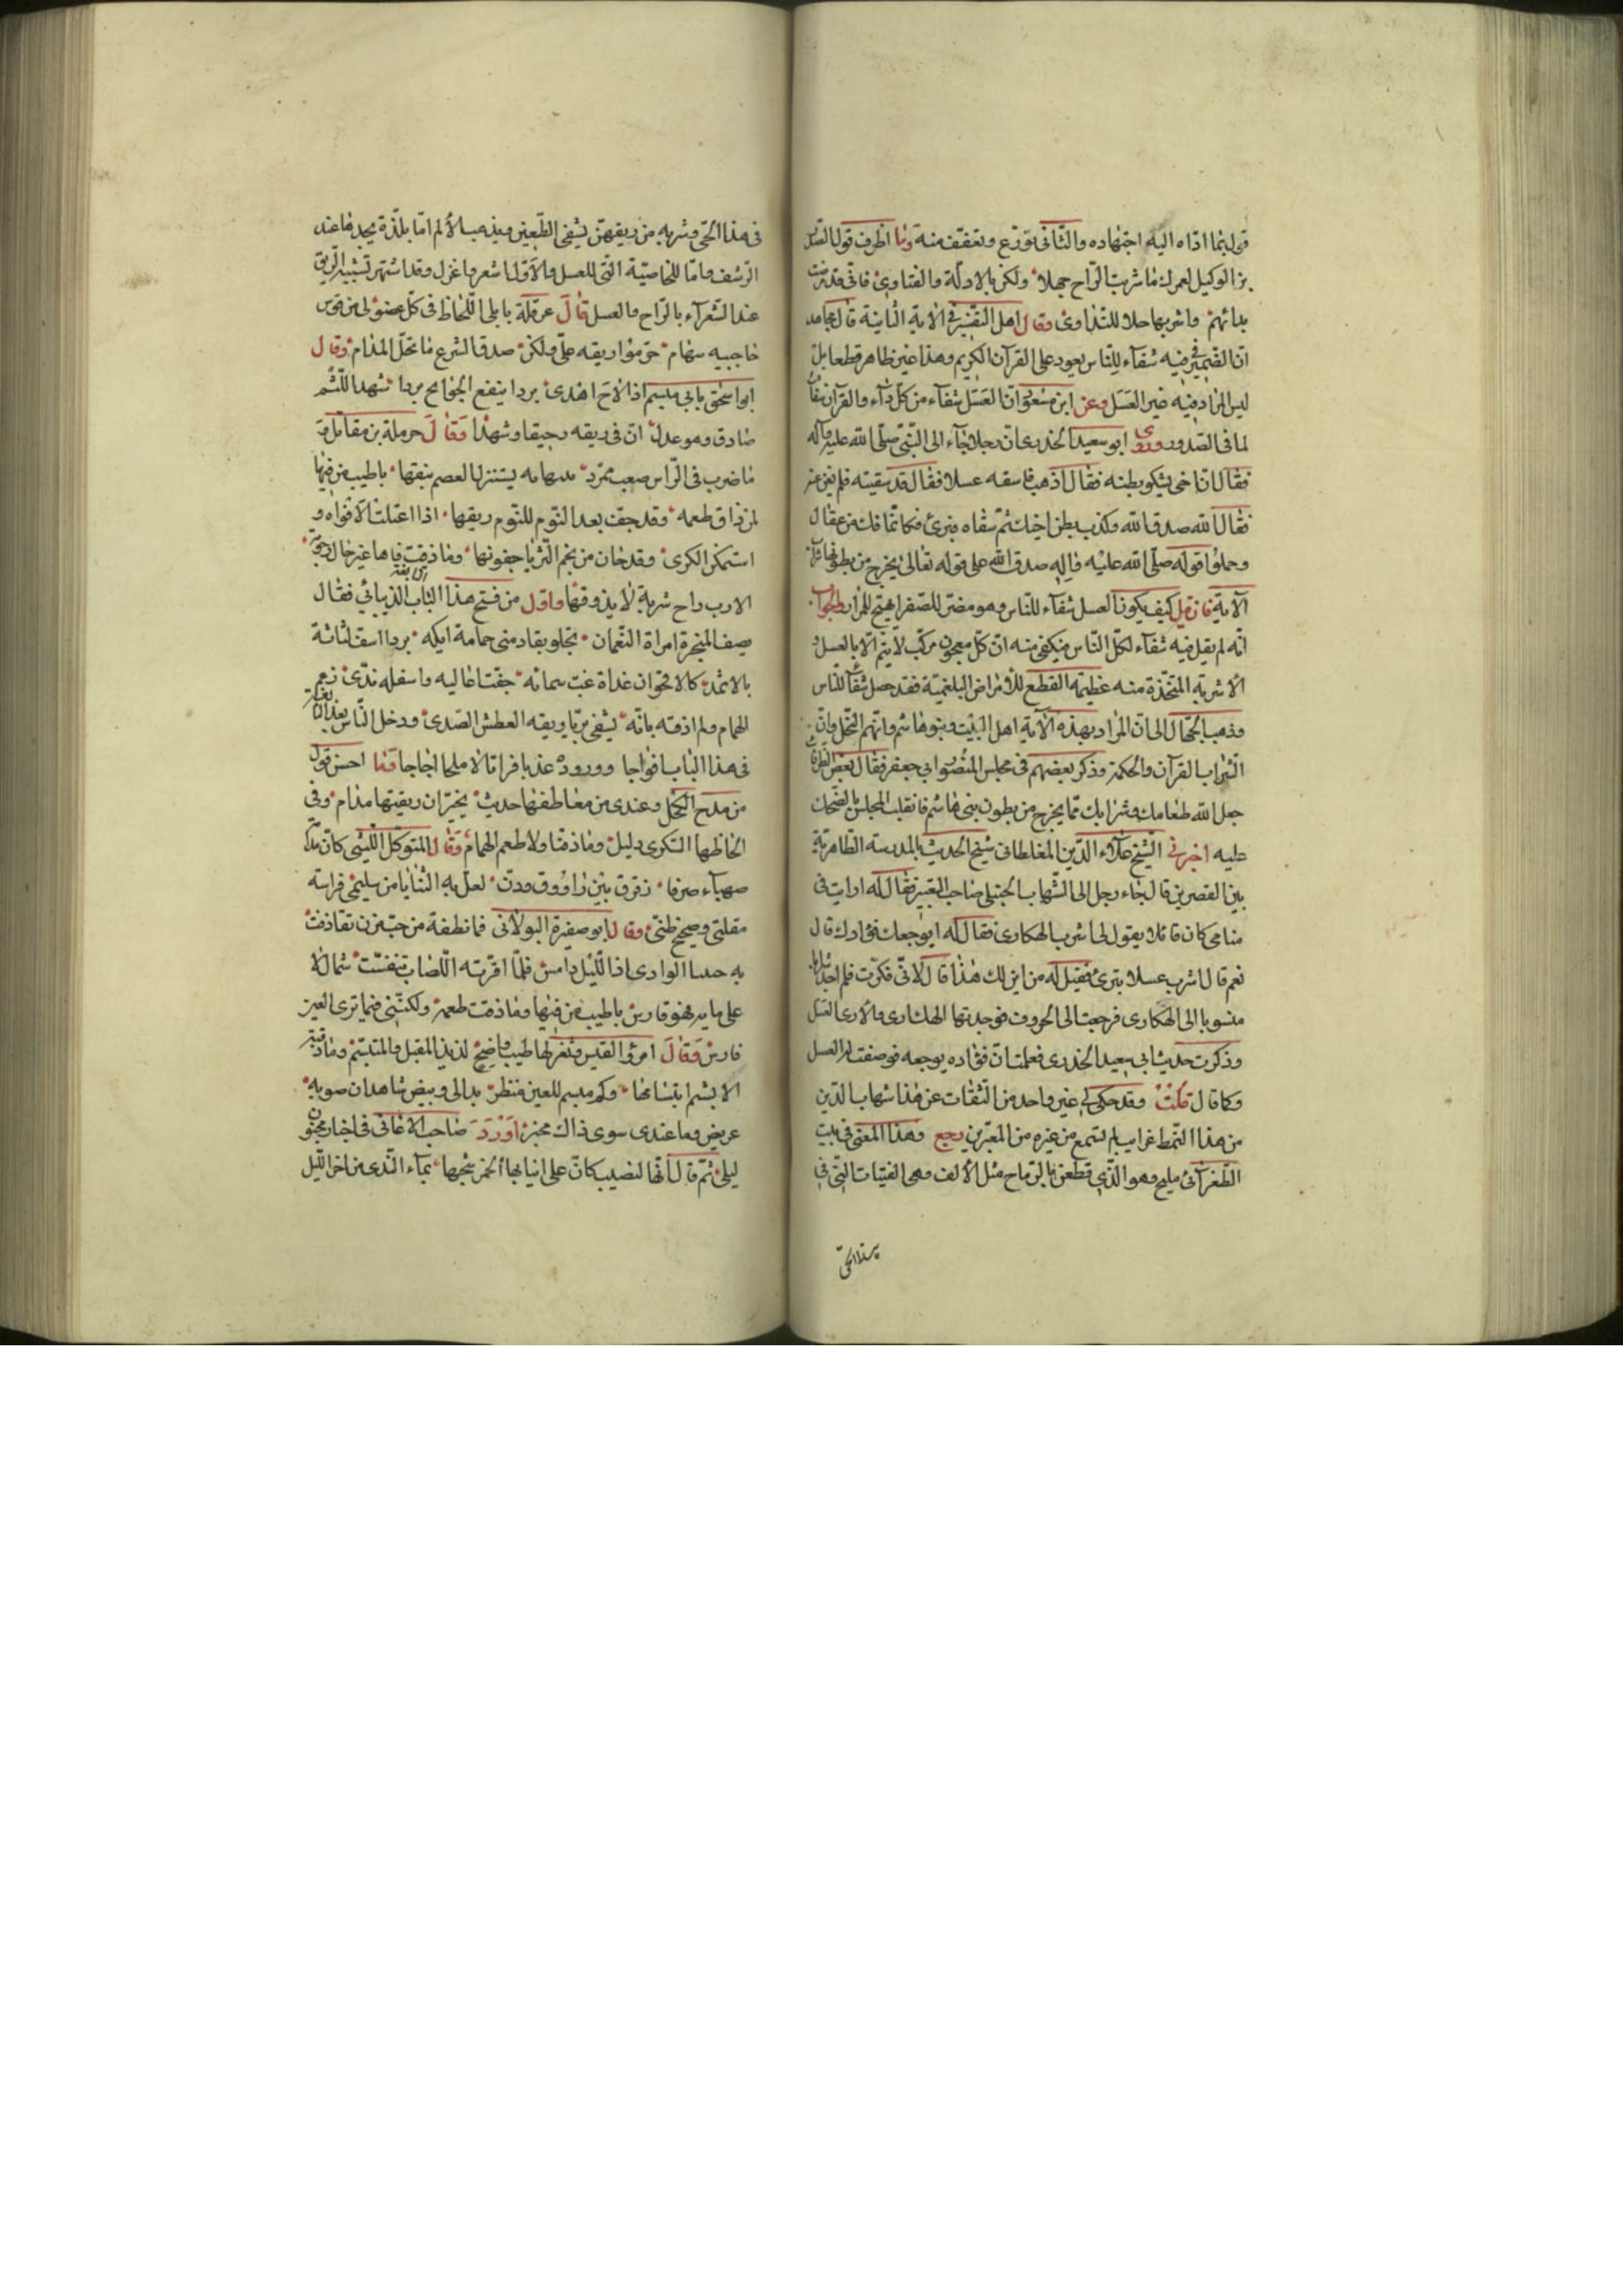 قولين بما اداه اليه اجتهاده والثانى تورّع وتعفّف منه وما اظرف قول الصدر
بن الوكيل لعمرك ما شربت الراح جهلا ولكن بالادلّة والفتاوى فانى قد مرضت
بدائهم واشربها حلالا للتداوى وقال اهل التفسير فى الاية الثانية قال مجاهد
انّ الضمير فى فيه شفاء للناس يعود على القرآن الكريم وهذا غير ظاهر قطعا بل
ليس المراد فيه غير العسل وعن ابن مسعود انّ العسل شفاء من كلّ داء والقرآن شفاء
لما فى الصدور وروى ابو سعيد الخدرى انّ رجلا جاء الى النبىّ صلّى الله عليه وآله
فقال انّ اخى يشكو بطنه فقال اذهب فاسقه عسلا فقال قد سقيته فلم يغن عنه
فقال الله صدق الله وكذب بطن اخيك ثم سقاه فبرئ فكانّما فكّ من عقال
وحملوا قوله صلّى الله عليه وآله صدق الله على قوله تعالى يخرج من بطونها شراب
الآية فان قيل كيف يكون العسل شفاء للناس وهو مضرّ للصفرا مهيّج للمرار فالجواب
انّه لم يقل فيه شفاء لكلّ الناس فيكفى منه انّ كلّ معجون مركّب لا يتمّ الا بالعسل و
الاشربة المتّخذة منه عظيمة القطع للامراض البلغميّة فقد حصل شفاء للناس
وذهب الجهّال الى انّ المراد بهذه الآية اهل البيت وبنو هاشم وانّهم النحل وانّ
الشراب القرآن والحكمة وذكر بعضهم فى مجلس المنصور ابى جعفر فقال بعض الظرفاء
جعل الله طعامك وشرابك مما يخرج من بطون بنى هاشم فانقلب المجلس بالضحك
عليه اخبرنى الشيخ علاء الدين المغلطاى شيخ الحديث بالمدرسة الظاهرية
بين القصرين قال جاء رجل الى الشهاب الحنبلى صاحب التعبير فقال له رايت فى
منامى كان قائلا يقول لى اشرب الهكارى فقال له ايوجعك فؤادك قال
نعم قال اشرب عسلا تبرئ فقيل له من اين لك هذا قال لانّى فكرت فلم اجد شرابا
منسوبا الى الهكارى فرجعت الى الحروف فوجدتها الهك ارى والارى العسل
وذكرت حديث ابى سعيد الخدرى فعلمت انّ فؤاده يوجعه فوصفت له العسل
وكما قال قلت وقد حكى لى غير واحد من الثقات عن هذا شهاب الدين
من هذا النمط غرايب لم تسمع من غيره من المعبّرين رجع وهذا المعنى فى بيت
الطغرائى مليح وهو الذى قطعن بالرماح مثل الالف وهى الفتيات التى فى
هذا الحىّ
فى هذا الحىّ وشربه من ريقهنّ يشفى الطعين ويذهب الالم امّا بلذّة يجدها عند
الرشف وامّا للخاصيّة التى للعسل والاوّل اشعر واغزل وقد اشتهر تشبيه الريق
عند الشعراء بالراح والعسل قال عرقلة بابلى اللحاظ فى كلّ عضو لى من قوس
حاجبيه سهام حرّموا ريقه علىّ ولكن صدق الشرع ما تحلّ المدام وقال
ابو اسحق بابى مبسم اذا لاح اهدى بردا ينفع الجوانح بردا شهد اللثم
صادق وهو عدل انّ فى ريقه رحيقا وشهدا وقال حرملة بن مقاتل
ما ضرب فى الراس صعب ممرّد يستنزل العصم نيقها باطيب من فيها
لمن ذاق طعمه وقد جفّ بعد النوم للنوم ريقها اذا اعتلت الافواه و
استمكن الكرى وقد حان من نجم الثريا خفوقها وما ذقت فاها غير خال رجوته
الا ربّ راح شربة لا يذوقها واقول من فتح هذا الباب الذبيانى فقال
يصف المتجردة امراة النعمان تجلو بقادمتى حمامة ايكة بردا اسفّ لثاته
بالاثمد كالاقحوان غداة غبّ سمائه جفّت اعاليه واسفله ندى زعم
الهمام ولم اذقه بانّه يشفى بريّا ريقه العطش الصدى ودخل الناس بعد النابغة
فى هذا الباب افواجا ووردوه عذبا فراتا لا ملحا اجاجا فما احسن قول
من مدح البخل وعندى من معاطفها حديث يخبر ان ريقتها مدام وفى
الحاظها السكرى دليل وما ذقنا ولا طعم الهمام وقال المتوكل الليثى كانّ مدامة
صهباء صرفا ترقرق بين راووق ودنّ تعلّ به الثنايا من سليمى فراسة
مقلتى وصحيح ظنّى وقال ابو صفيرة البولانى فما نطفة من حبّ مزن تقاذفت
به الوادى اذا الليل دامس فلمّا اقرّته اللصاب تنفّست شمال لا
على مائه فهو قارس باطيب من فيها وما ذقت طعمه ولكنّنى فيما ترى العين
فارس وقال امرؤ القيس وثغر لها طيب واضح لذيذ المقبل والمتبسّم وما ذقته
الا بشم ابتسامها وكم مبسم للعين منظر بدا لى وبيض شاهدان صوبه
عريض وما عندى سوى ذاك مخبر اورد صاحب الاغانى فى اخبار مجنون
ليلى ثم قال انّها لنصيب كانّ على انيابها الخمر شجّها بماء الندى من اخر الليل